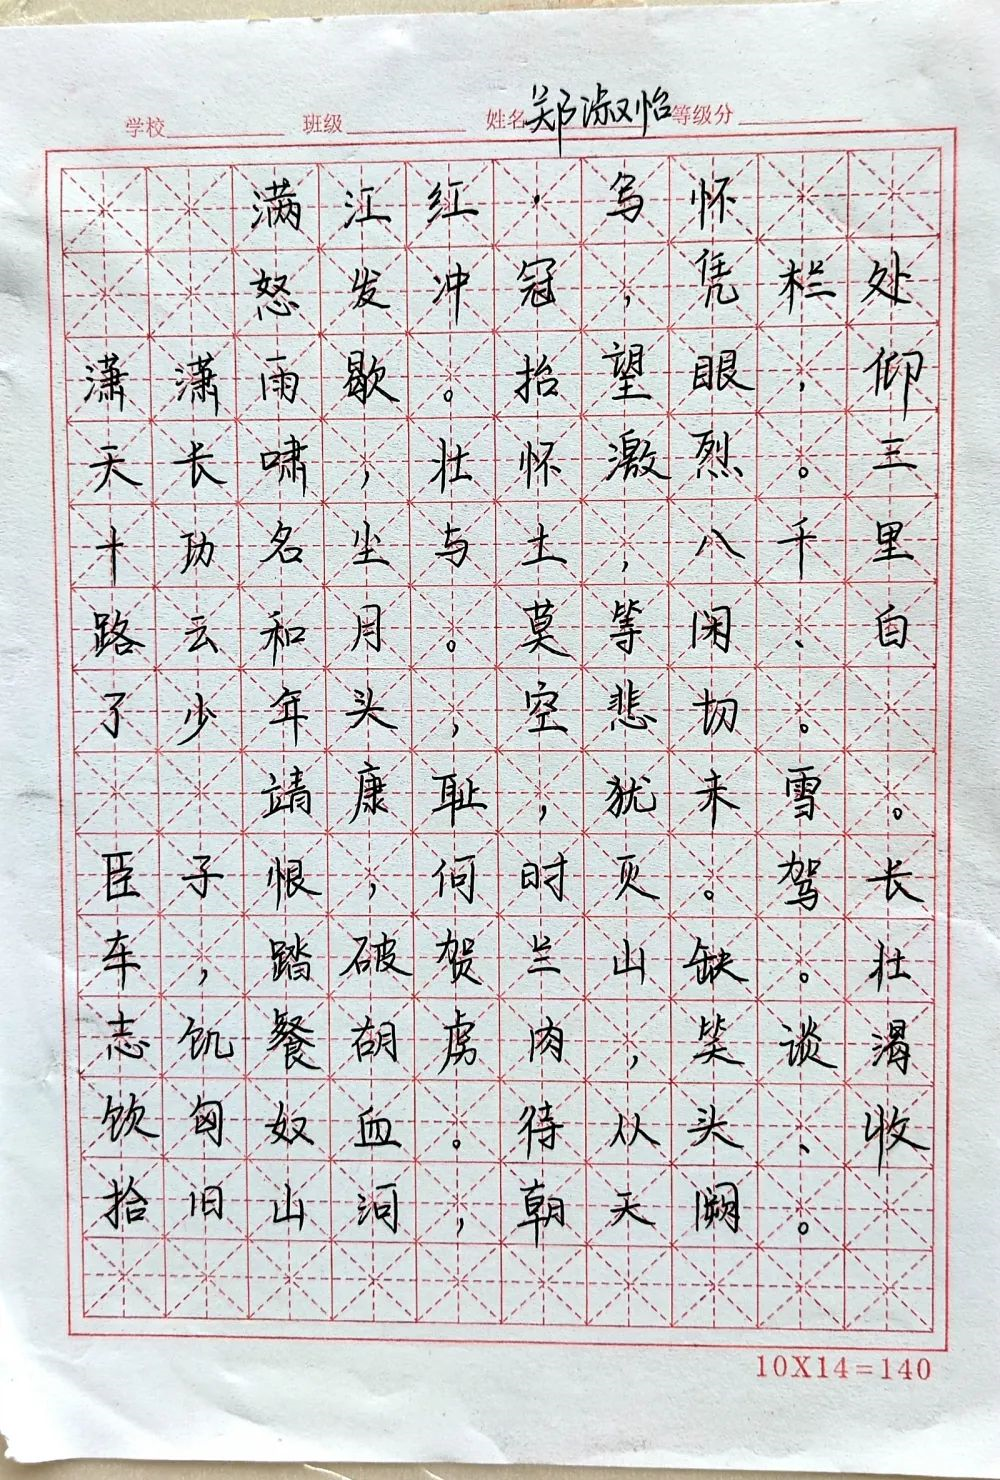 学校 班级 姓名郑淑怡等级分
满江红·写怀
怒发冲冠，凭栏处
潇潇雨歇。抬望眼，仰
天长啸，壮怀激烈。三
十功名尘与土，八千里
路云和月。莫等闲、白
了少年头，空悲切。
靖康耻，犹未雪。
臣子恨，何时灭。驾长
车，踏破贺兰山缺。壮
志饥餐胡虏肉，笑谈渴
饮匈奴血。待从头、收
拾旧山河，朝天阙。
10X14=140